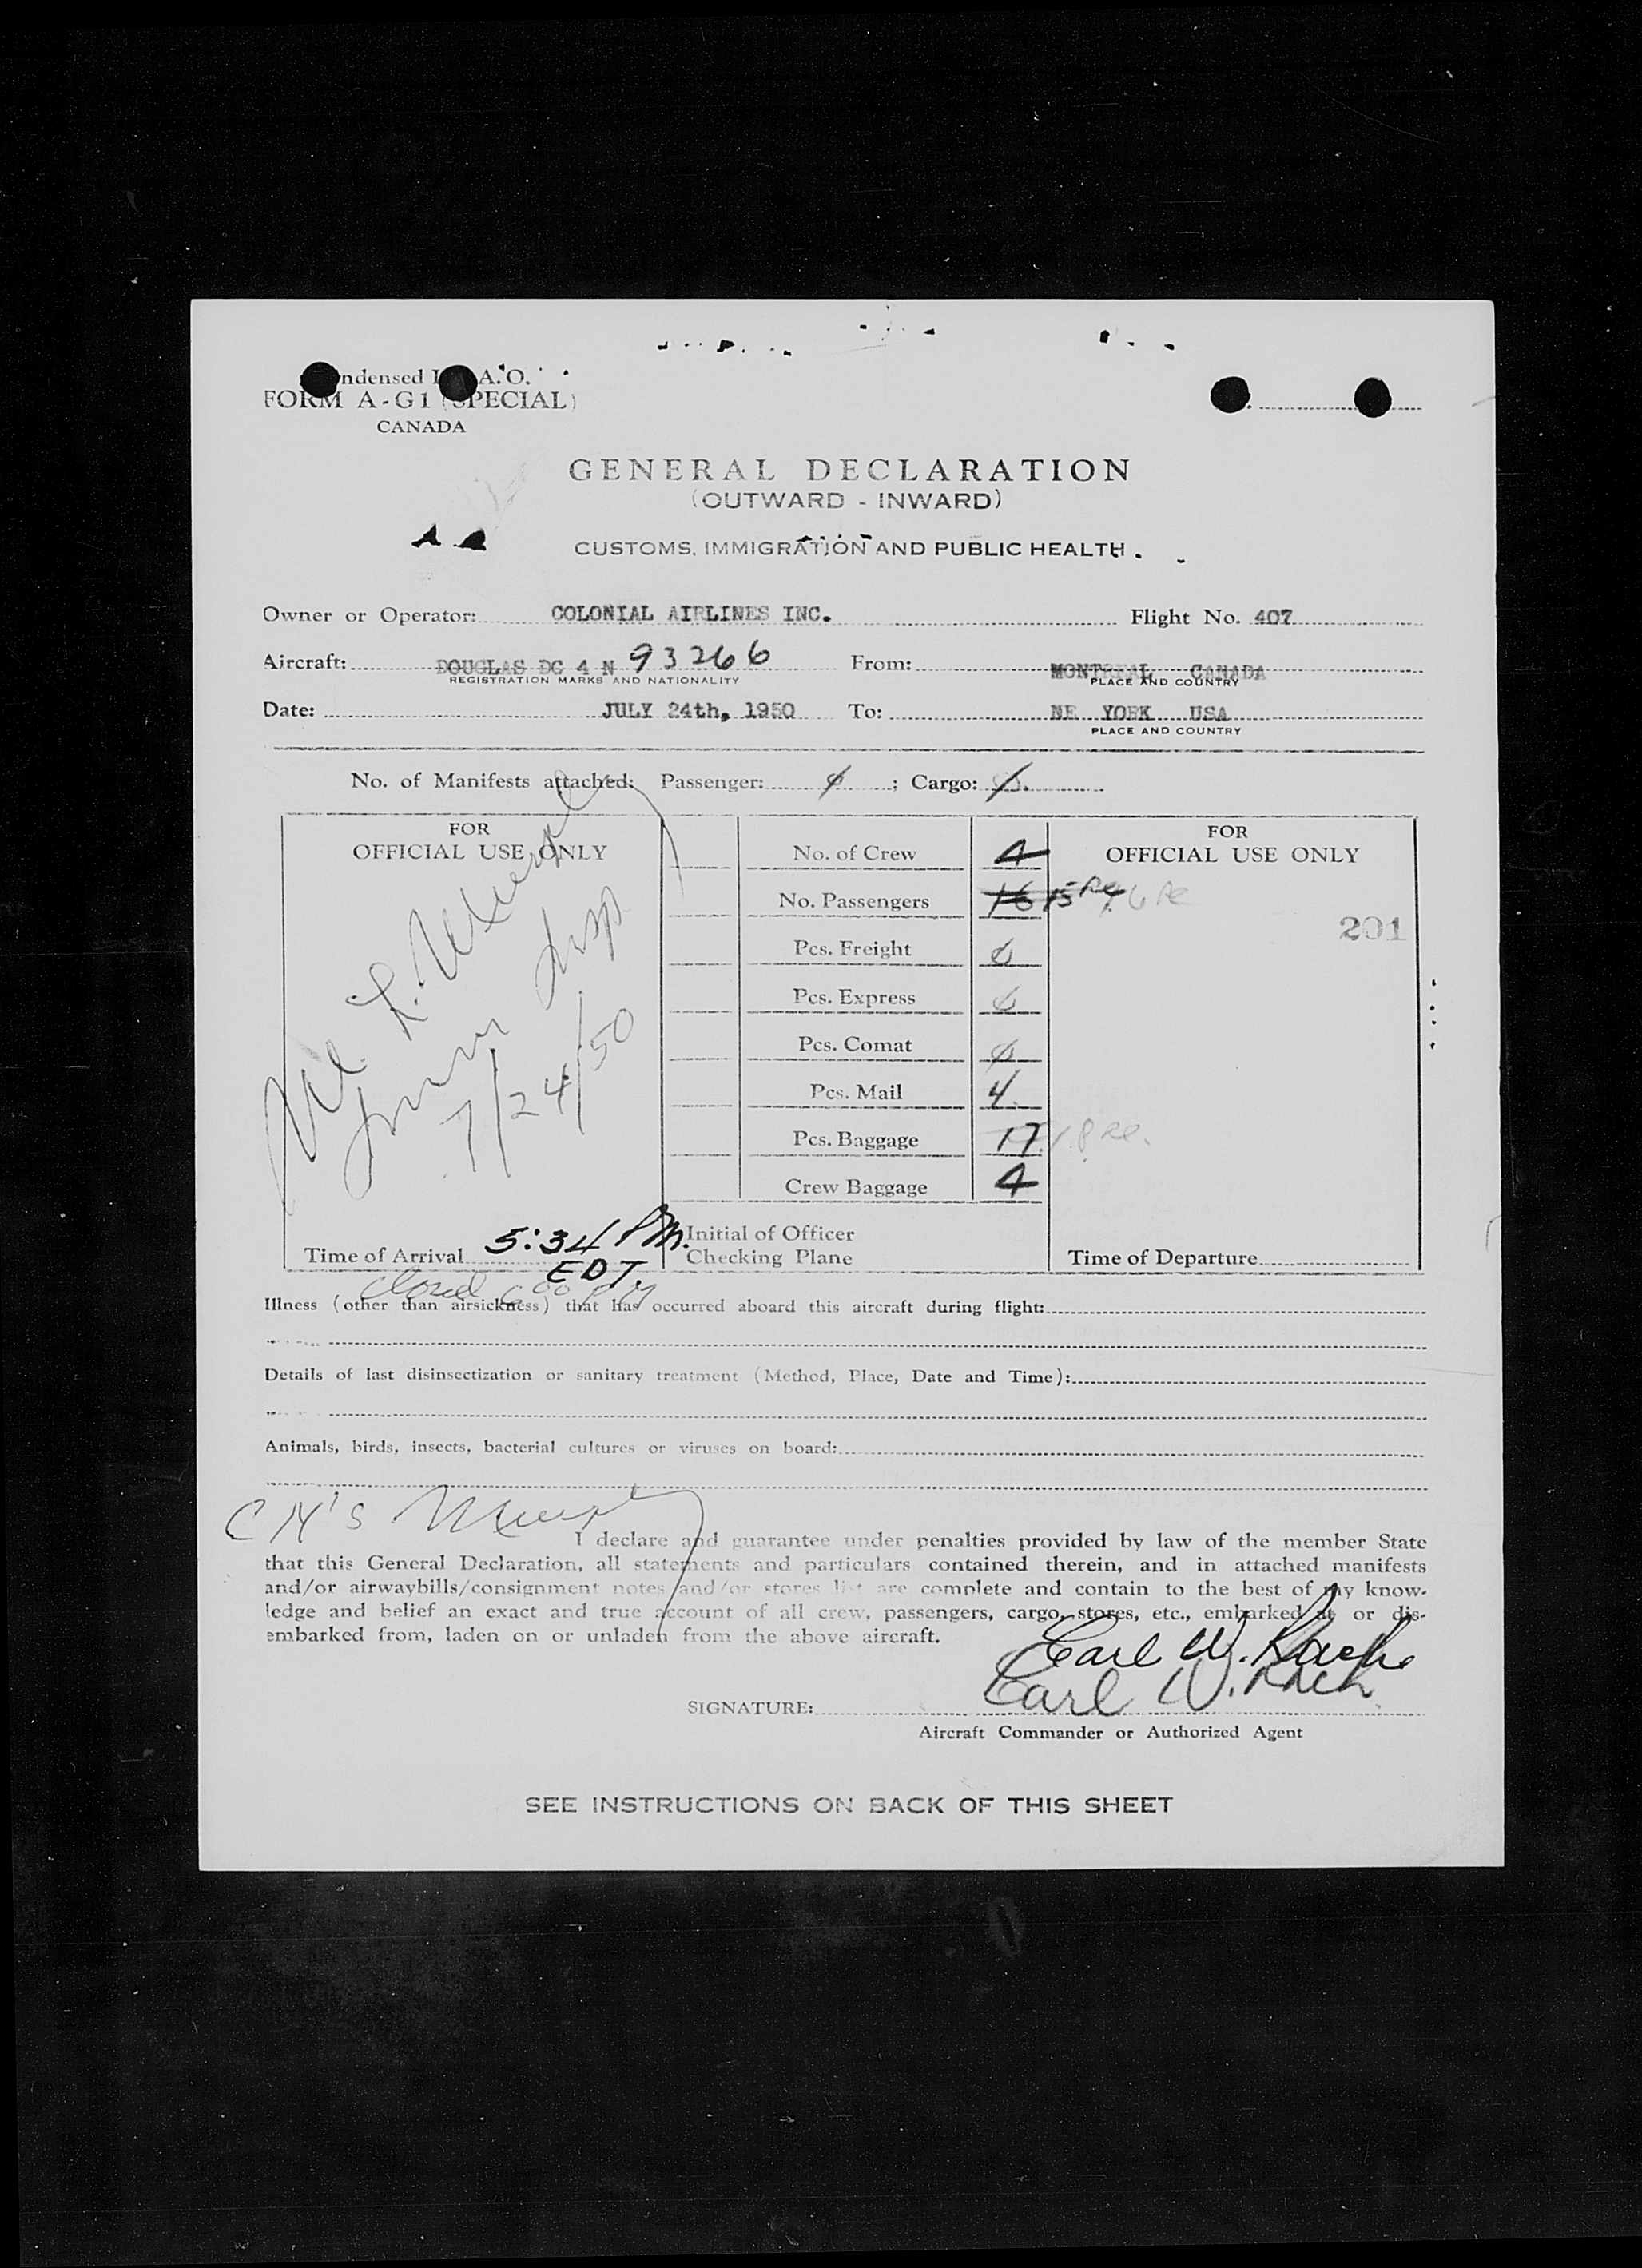 ndensed I A.O.
FORM A-G1 (SPECIAL)
CANADA
GENERAL DECLARATION
(OUTWARD - INWARD)
CUSTOMS, IMMIGRATION AND PUBLIC HEALTH.
Owner or Operator: COLONIAL AIRLINES INC. Flight No. 407
Aircraft: DOUGLAS DC 4 N 93266 From: MONTREAL CANADA
REGISTRATION MARKS AND NATIONALITY PLACE AND COUNTRY
Date: JULY 24th, 1950 To: NE YORK USA
PLACE AND COUNTRY
No. of Manifests attached: Passenger: ; Cargo:
FOR
OFFICIAL USE ONLY
7/24/50
Time of Arrival 5:34 PM.
EDT.
closed 6 00 PM
No. of Crew 4
No. Passengers 16 15
Pcs. Freight
Pcs. Express
Pcs. Comat
Pcs. Mail 4
Pcs. Baggage 17
Crew Baggage 4
Initial of Officer
Checking Plane
FOR
OFFICIAL USE ONLY
201
Time of Departure
Illness (other than airsickness) that has occurred aboard this aircraft during flight:
Details of last disinsectization or sanitary treatment (Method, Place, Date and Time):
Animals, birds, insects, bacterial cultures or viruses on board:
I declare and guarantee under penalties provided by law of the member State
that this General Declaration, all statements and particulars contained therein, and in attached manifests
and/or airwaybills/consignment notes and/or stores list are complete and contain to the best of my know-
ledge and belief an exact and true account of all crew, passengers, cargo, stores, etc., embarked at or dis-
embarked from, laden on or unladen from the above aircraft.
Earl W.
SIGNATURE: Earl W.
Aircraft Commander or Authorized Agent
SEE INSTRUCTIONS ON BACK OF THIS SHEET